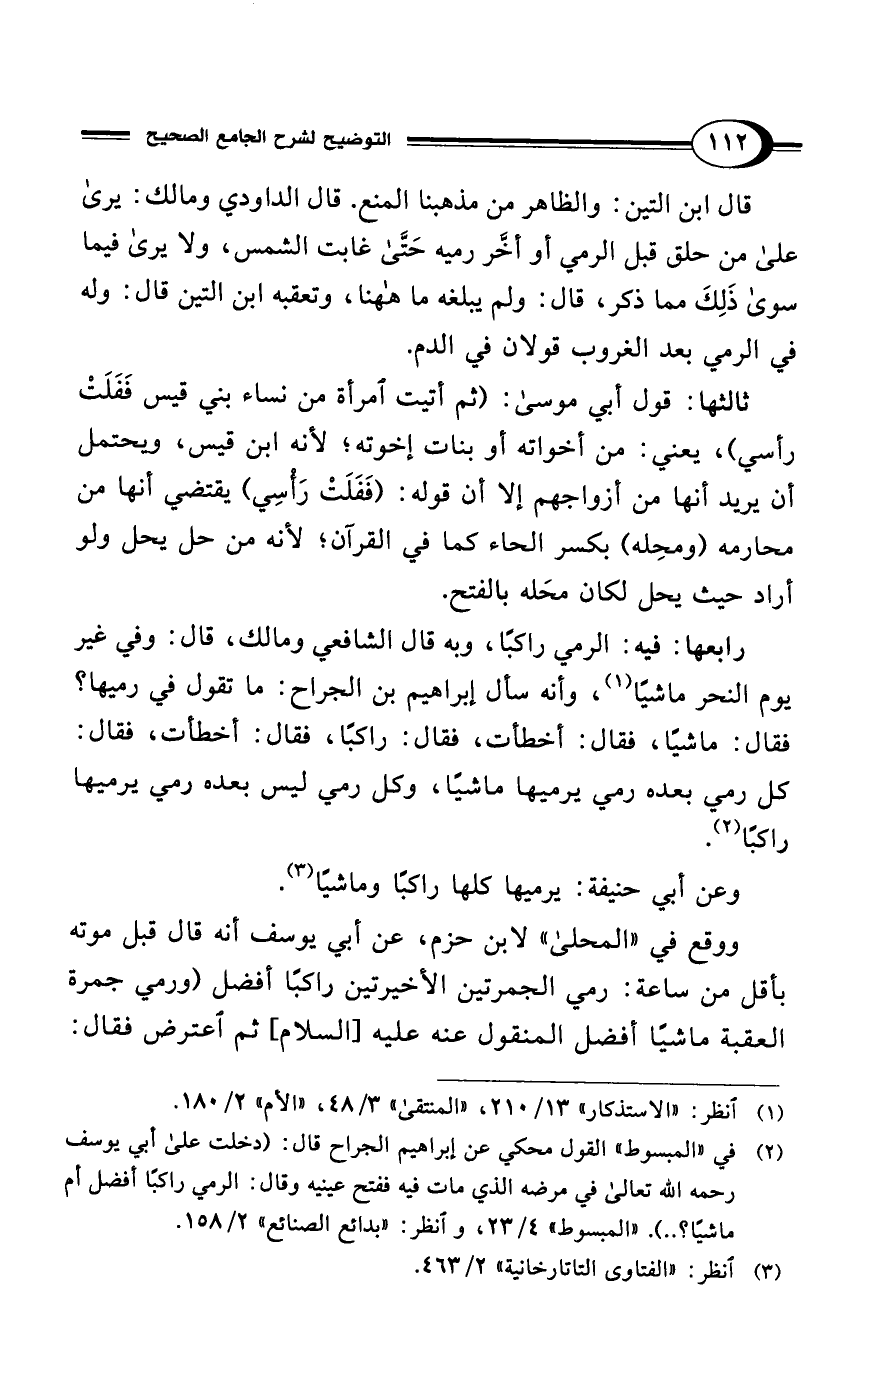 ١١٢
التوضيح لشرح الجامع الصحيح
قال ابن التين: والظاهر من مذهبنا المنع. قال الداودي ومالك: يرىٰ
علىٰ من حلق قبل الرمي أو أخَّر رميه حَتَّىٰ غابت الشمس، ولا يرىٰ فيما
سوىٰ ذَلِكَ مما ذكر، قال: ولم يبلغه ما هٰهنا، وتعقبه ابن التين قال: وله
في الرمي بعد الغروب قولان في الدم.
ثالثها: قول أبي موسىٰ: (ثم أتيت ٱمرأة من نساء بني قيس فَفَلَتْ
رأسي)، يعني: من أخواته أو بنات إخوته؛ لأنه ابن قيس، ويحتمل
أن يريد أنها من أزواجهم إلا أن قوله: (فَفَلَتْ رَأْسِي) يقتضي أنها من
محارمه (ومحِله) بكسر الحاء كما في القرآن؛ لأنه من حل يحل ولو
أراد حيث يحل لكان محَله بالفتح.
رابعها: فيه: الرمي راكبًا، وبه قال الشافعي ومالك، قال: وفي غير
يوم النحر ماشيًا(١)، وأنه سأل إبراهيم بن الجراح: ما تقول في رميها؟
فقال: ماشيًا، فقال: أخطأت، فقال: راكبًا، فقال: أخطأت، فقال:
كل رمي بعده رمي يرميها ماشيًا، وكل رمي ليس بعده رمي يرميها
راكبًا(٢).
وعن أبي حنيفة: يرميها كلها راكبًا وماشيًا(٣).
ووقع في «المحلىٰ» لابن حزم، عن أبي يوسف أنه قال قبل موته
بأقل من ساعة: رمي الجمرتين الأخيرتين راكبًا أفضل (ورمي جمرة
العقبة ماشيًا أفضل المنقول عنه عليه [السلام] ثم ٱعترض فقال:
(١) ٱنظر: «الاستذكار» ١٣/ ٢١٠، «المنتقىٰ» ٣/ ٤٨، «الأم» ٢/ ١٨٠.
(٢) في «المبسوط» القول محكي عن إبراهيم الجراح قال: (دخلت علىٰ أبي يوسف
رحمه الله تعالىٰ في مرضه الذي مات فيه ففتح عينيه وقال: الرمي راكبًا أفضل أم
ماشيًا؟..). «المبسوط» ٤/ ٢٣، و أنظر: «بدائع الصنائع» ٢/ ١٥٨.
(٣) ٱنظر: «الفتاوى التاتارخانية» ٢/ ٤٦٣.